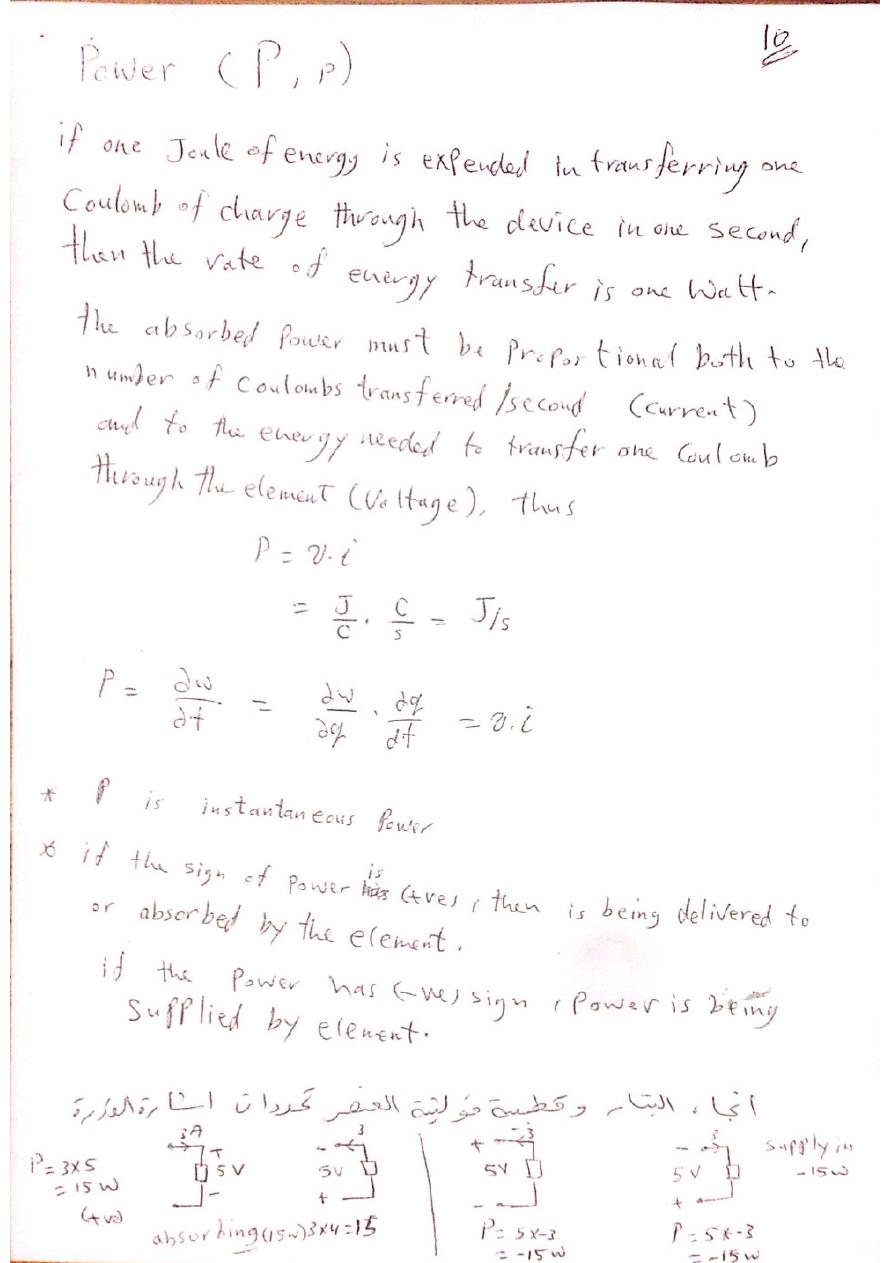 10
Power (P, p)
if one Joule of energy is expended in transferring one
Coulomb of charge through the device in one second,
then the rate of energy transfer is one Watt.
the absorbed Power must be Proportional both to the
number of Coulombs transferred /second (current)
and to the energy needed to transfer one Coulomb
through the element (Voltage), thus
P = v.i
= J/C . C/s = J/s
P = ∂w/∂t = ∂w/∂q . ∂q/∂t = v.i
* P is instantaneous Power
* if the sign of Power is (+ve), then is being delivered to
or absorbed by the element.
if the Power has (-ve) sign, Power is being
Supplied by element.
اتجاه التيار وقطبية فولتية العنصر تحددان اشارة القدرة
3A + 5V -
P = 3x5
= 15 W
(+ve)
- 3 5V +
absorbing (15w) 3x4=15
+ -3 5V -
P = 5x-3
= -15 W
- 3 5V +
supply in
-15W
P = 5x-3
= -15 W